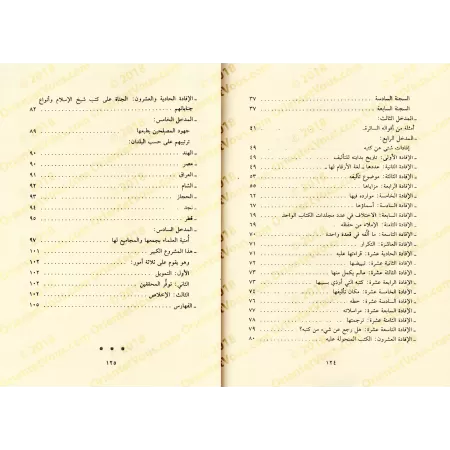 السجنة السادسة ٣٧
السجنة السابعة ٣٧
المدخل الثالث:
أمثلة من أقواله السائرة ٤١
المدخل الرابع:
إفادات شتى عن كتبه ٤٩
ـ الإفادة الأولى: تاريخ بدايته للتأليف ٤٩
ـ الإفادة الثانية: عددها ـ لغة الأرقام لها ـ
ـ الإفادة الثالثة: موضوع تأليفه ٥٣
ـ الإفادة الرابعة: مزاياها ٥٥
ـ الإفادة الخامسة: موارده فيها
ـ الإفادة السادسة: أسماؤها
ـ الإفادة السابعة: الاختلاف في عدد مجلدات الكتاب الواحد ٦٩
ـ الإفادة الثامنة: الإملاء من حفظه
ـ الإفادة التاسعة: ما ألفه في قعدة واحدة ٧٠
ـ الإفادة العاشرة: التكرار ٧١
ـ الإفادة الحادية عشرة: قراءتها عليه ٧١
ـ الإفادة الثانية عشرة: تبييضها
ـ الإفادة الثالثة عشرة: مالم يكمل منها ٧٣
ـ الإفادة الرابعة عشرة: كتبه التي أوذي بسببها ٧٣
ـ الإفادة الخامسة عشرة: مكان تأليفها ٧٤
ـ الإفادة السادسة عشرة: خطه
ـ الإفادة السابعة عشرة: مراسلاته
ـ الإفادة الثامنة عشرة: ترجمتها
ـ الإفادة التاسعة عشرة: هل رجع عن شيء من كتبه؟ ٧٩
ـ الإفادة العشرون: الكتب المنحولة عليه ٨٠
١٢٤
ـ الإفادة الحادية والعشرون: الجناة على كتب شيخ الإسلام وأنواع
جناياتهم ٨٢
ـ المدخل الخامس:
جهود المصلحين بطبعها ٨٩
ترتيبهم على حسب البلدان:
ـ الهند ٩٠
ـ مصر ٩٠
ـ العراق ٩١
ـ الشام
ـ الحجاز
ـ نجد
ـ قطر ٩٥
ـ المدخل السادس:
أمنية العلماء بجمعها والمجاميع لها ٩٧
ـ هذا المشروع الكبير
وهو يقوم على ثلاثة أمور: ١٠٢
الأول: التمويل ١٠٢
الثاني: توفُّر المحققين ١٠٢
الثالث: الإخلاص
ـ الفهارس ١٠٥
١٢٥